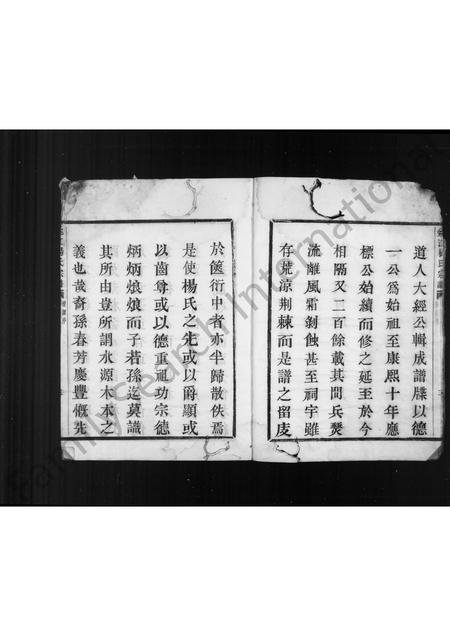 道人大經公輯成譜牒以德
一公爲始祖至康熙十年應
標公始續而修之延至於今
相隔又二百餘載其間兵燹
流離風霜剝蝕甚至祠宇雖
存荒涼荆棘而是譜之留庋
於篋衍中者亦半歸散佚焉
是使楊氏之先或以爵顯或
以齒尊或以德重祖功宗德
炳炳烺烺而子若孫迄莫識
其所由豈所謂水源木本之
義也哉裔孫春芳慶豐慨先
FamilySearch International